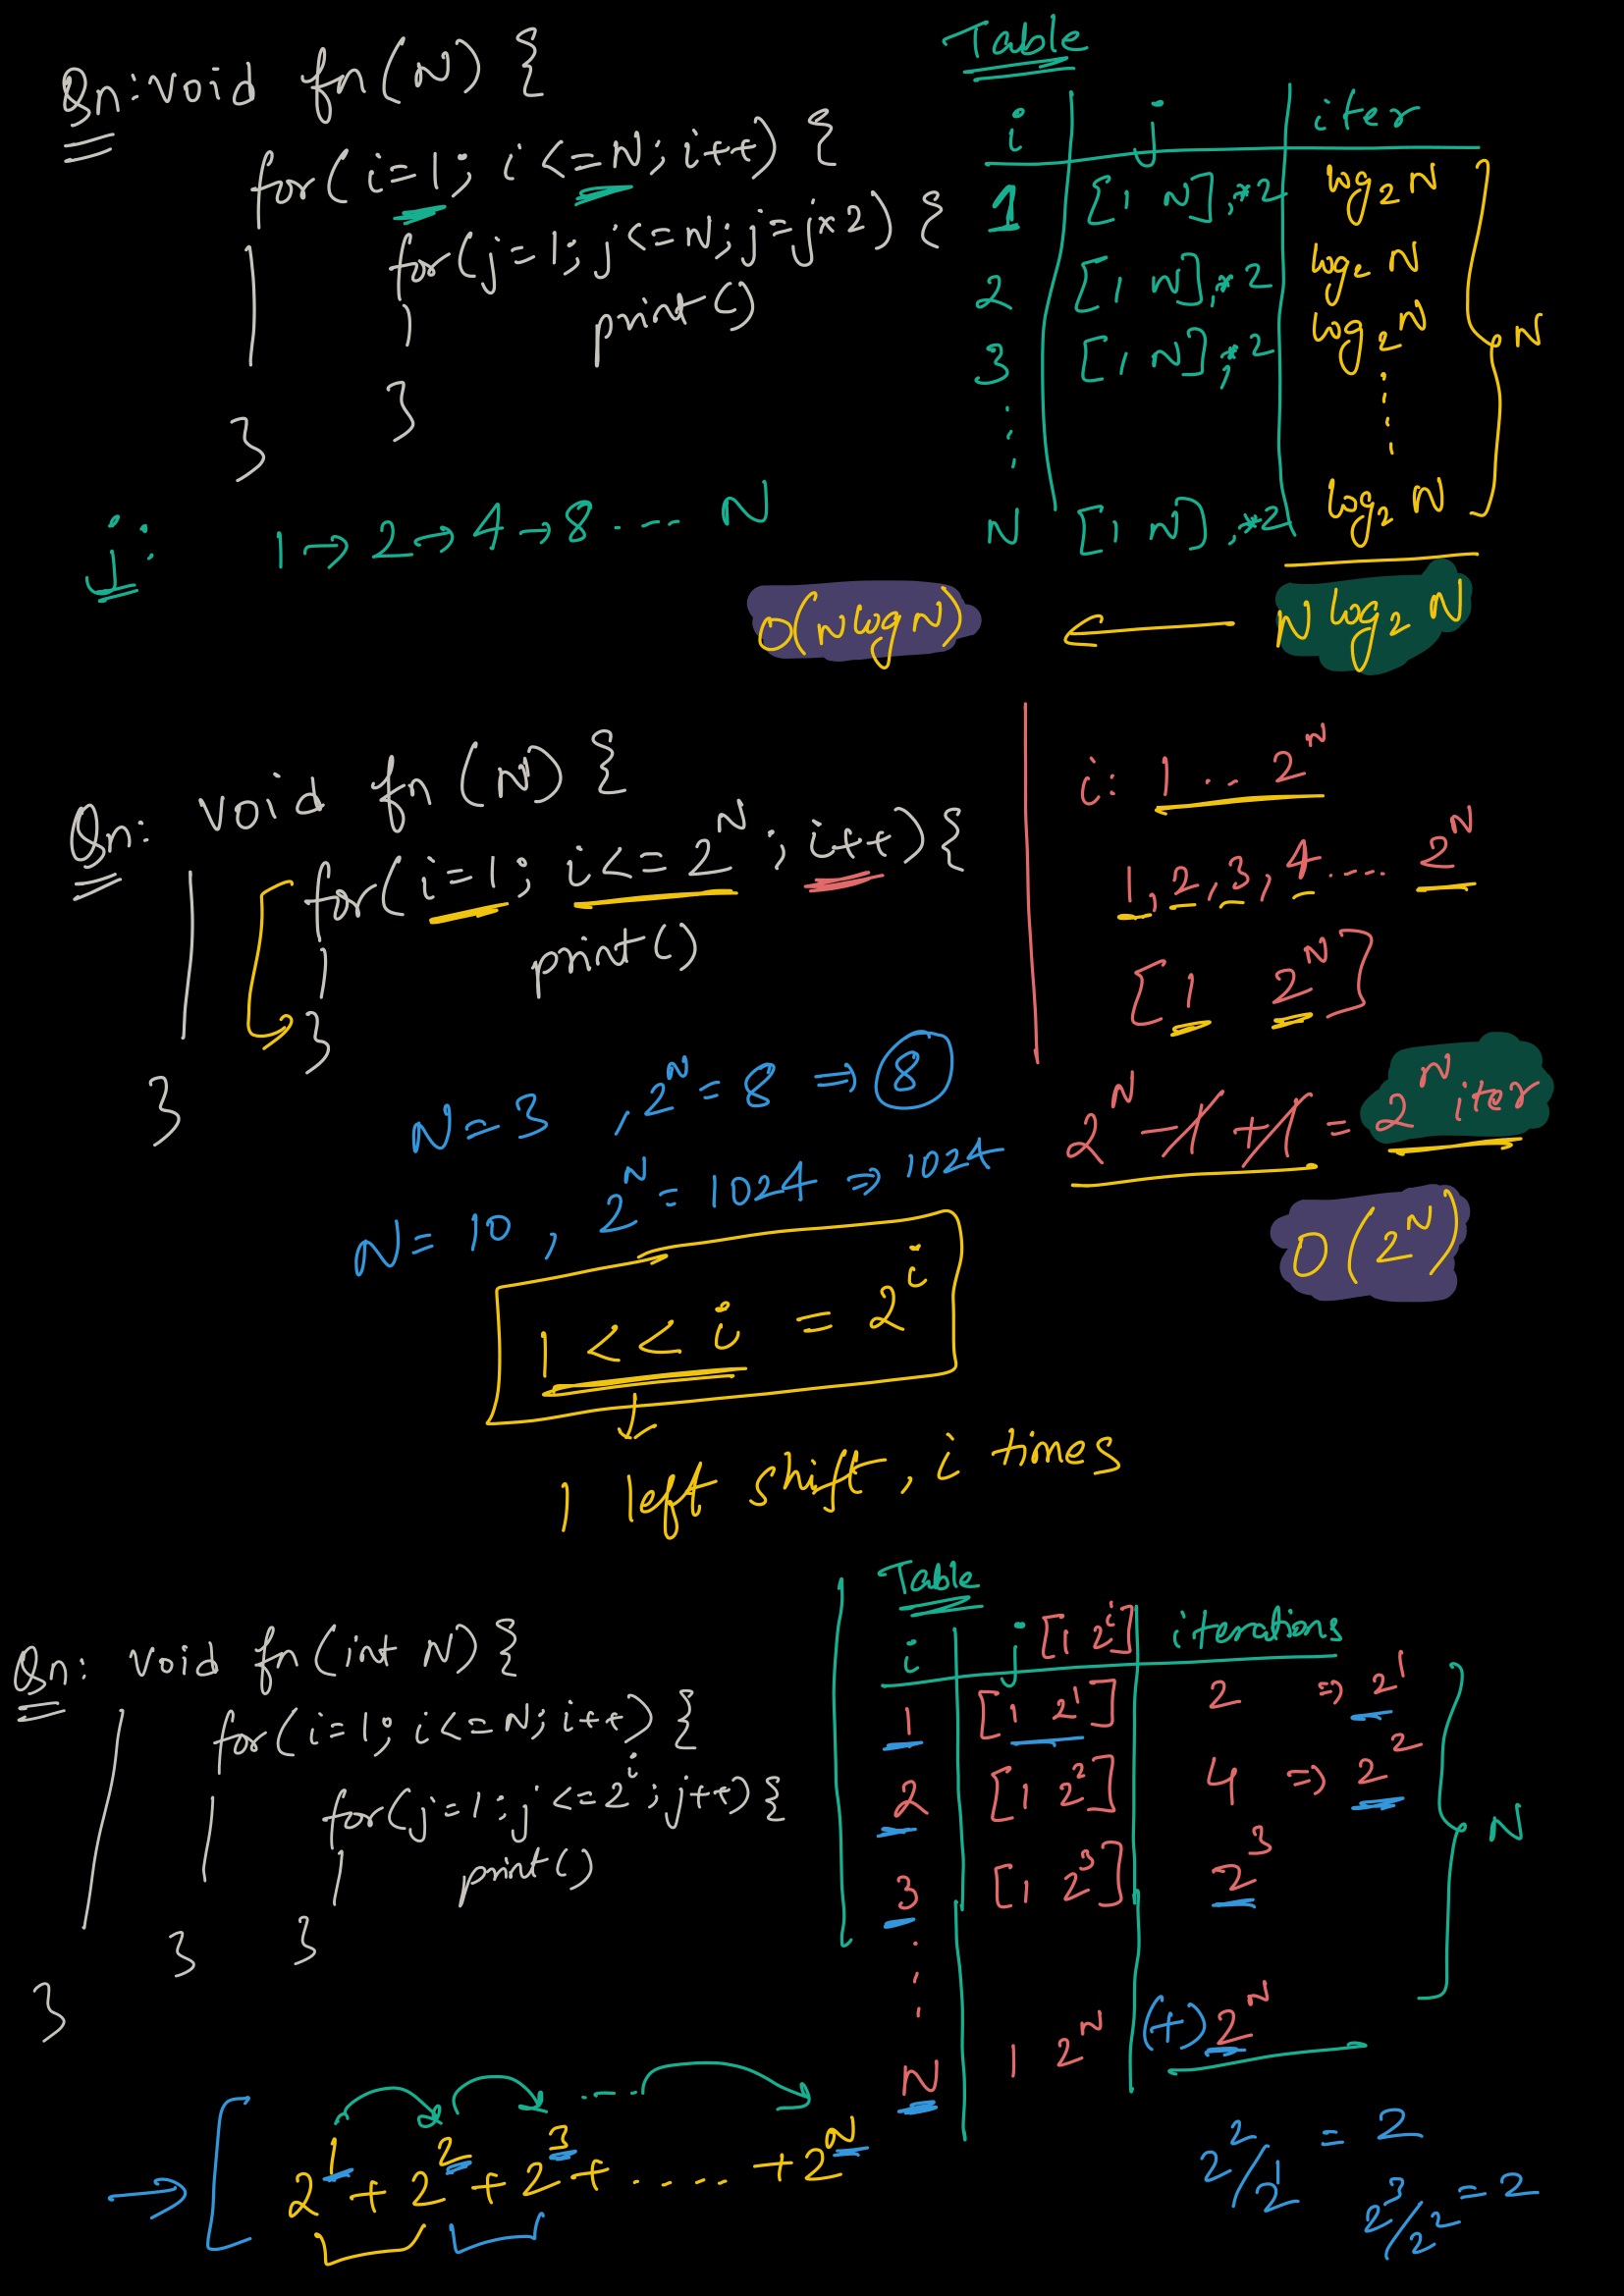 Qn: void fn(N) {
for(i=1; i<=N; i++) {
for(j=1; j<=N; j=j*2) {
print()
}
}
j: 1→2→4→8.--- N
Table
i j iter
1 [1 N],*2 log₂N
2 [1 N],*2 log₂N
3 [1 N],*2 log₂N
N [1 N],*2 log₂N
N
N log₂N
O(N log N)
Qn: void fn(N) {
for(i=1; i<=2^N; i++){
print()
}
}
i: 1 .. 2^N
1,2,3,4.... 2^N
[1 2^N]
2^N -1 +1 = 2^N iter
O(2^N)
N=3 , 2^N = 8 ⇒ 8
N= 10 , 2^N = 1024 ⇒ 1024
1 << i = 2^i
1 left shift, i times
Qn: void fn(int N) {
for(i=1; i<=N; i++) {
for(j=1; j<=2^i; j++){
print()
} }
}
Table
i j [1 2^i] iterations
1 [1 2^1] 2 ⇒ 2^1
2 [1 2^2] 4 ⇒ 2^2
3 [1 2^3] 2^3
N 1 2^N (+) 2^N
N
→ [ 2^1 + 2^2 + 2^3 + ..... + 2^N
2^2/2^1 = 2
2^3/2^2 = 2